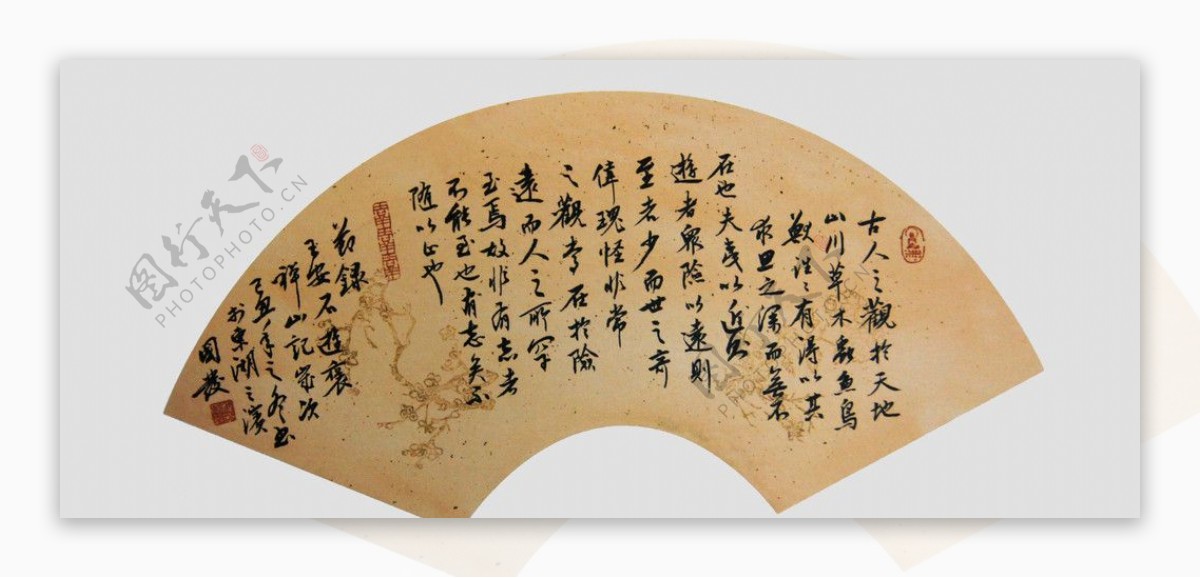 古人之觀於天地
山川草木蟲魚鳥
獸往々有得以其
求思之深而無不
在也夫夷以近則
遊者眾險以遠則
至者少而世之奇
偉瑰怪非常
之觀常在於險
遠而人之所罕
至焉故非有志者
不能至也有志矣不
随以止也
節錄
王安石遊褒
禅山記歲次
丁亥年之冬书
於東湖之濱
國發
图行天下
PHOTOPHOTO.CN